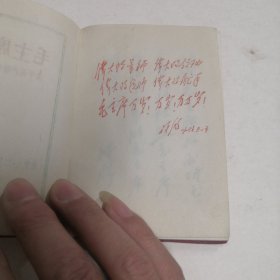 毛主席
伟大的导师 伟大的领袖
伟大的统帅 伟大的舵手
毛主席万岁！万岁！万万岁！
林彪